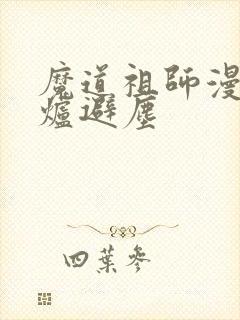 魔道祖師漫
爐避塵
四葉參